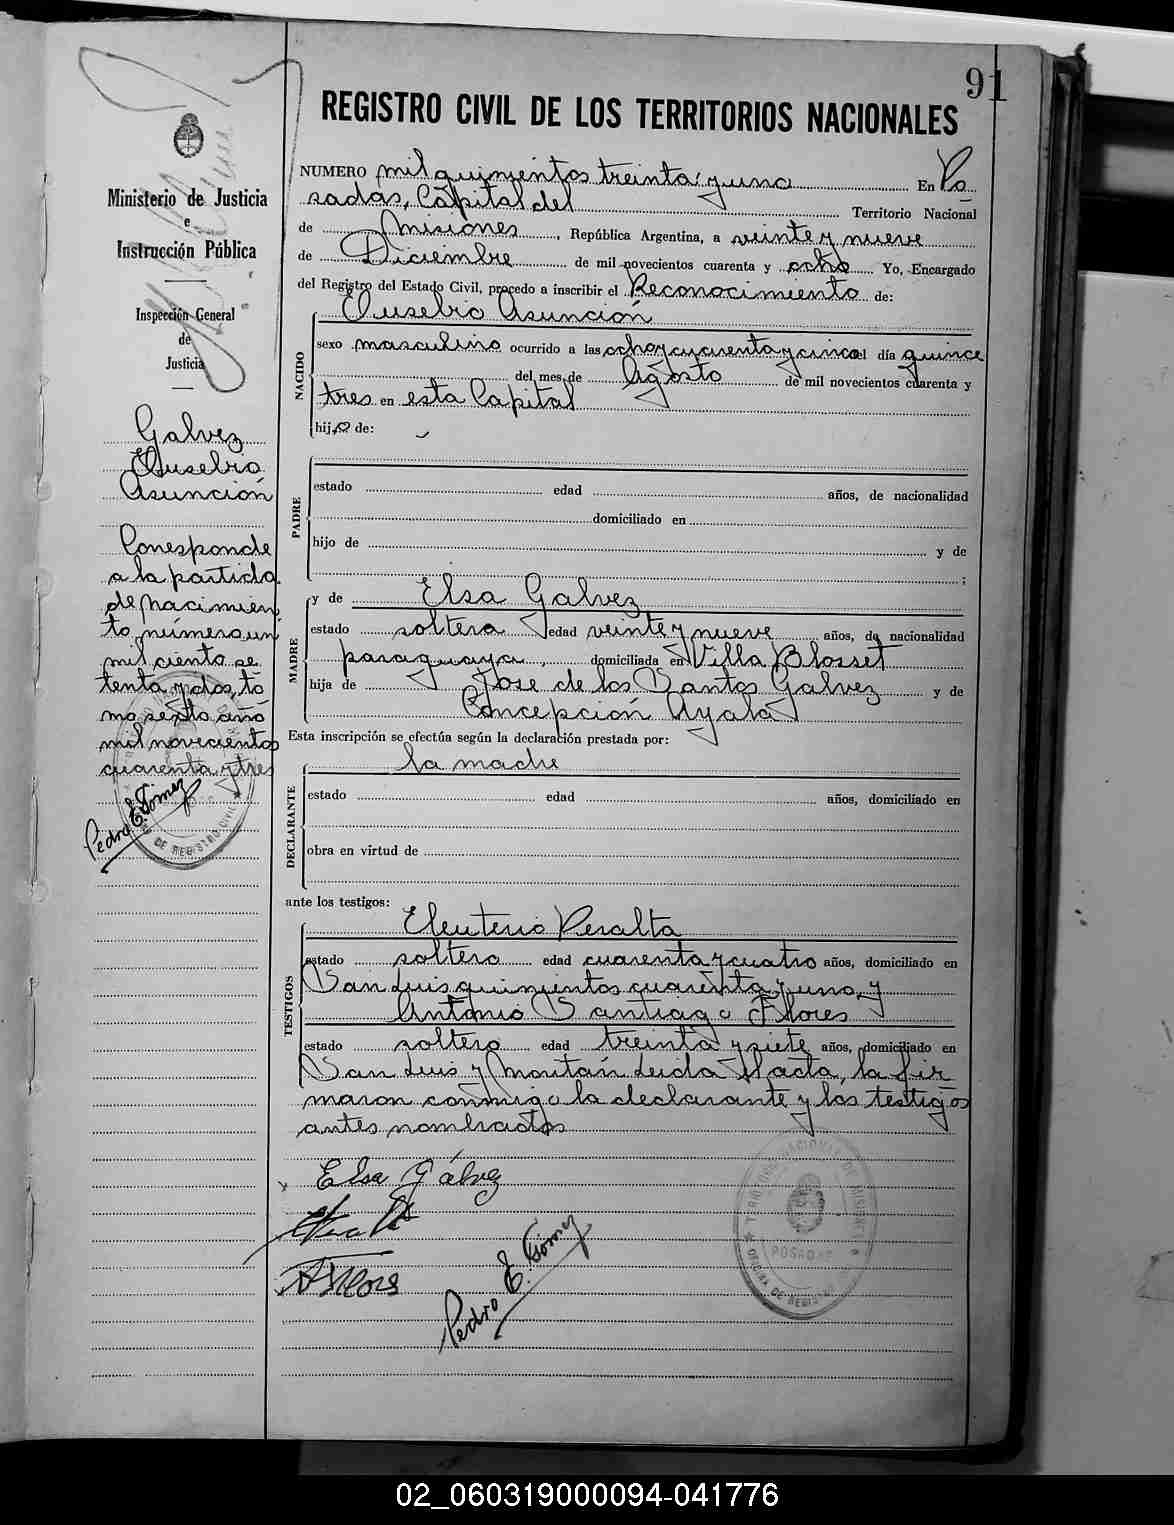 91
REGISTRO CIVIL DE LOS TERRITORIOS NACIONALES
Ministerio de Justicia
e
Instrucción Pública
Inspección General
de
Justicia
Galvez
Eusebio
Asunción
Corresponde
a la partida
de nacimien
to número un
mil ciento se
tenta y dos, to
mo sexto año
mil novecientos
cuarenta y tres
Pedro E. Gómez
NUMERO mil quinientos treinta y uno En Po
sadas, Capital del Territorio Nacional
de Misiones, República Argentina, a veinte y nueve
de Diciembre de mil novecientos cuarenta y ocho Yo, Encargado
del Registro del Estado Civil, procedo a inscribir el Reconocimiento de:
Eusebio Asunción
NACIDO
sexo masculino ocurrido a las ocho y cuarenta y cinco el día quince
del mes de Agosto de mil novecientos cuarenta y
tres en esta Capital
hijo de:
PADRE
estado edad años, de nacionalidad
domiciliado en
hijo de y de
;
MADRE
y de Elsa Galvez
estado soltera edad veinte y nueve años, de nacionalidad
paraguaya, domiciliada en Villa Blosset
hija de Jose de los Santos Galvez y de
Concepción Ayala
Esta inscripción se efectúa según la declaración prestada por:
la madre
DECLARANTE
estado edad años, domiciliado en
obra en virtud de
ante los testigos:
TESTIGOS
Eleuterio Peralta
estado soltero edad cuarenta y cuatro años, domiciliado en
San Luis quinientos cuarenta y uno y
Antonio Santiago Flores
estado soltero edad treinta y siete años, domiciliado en
San Luis y Moritán Leida ll acta, la fir
maron conmigo la declarante y los testigos
antes nombrados
Elsa Gálvez
AFlores
Pedro E. Gómez
TERRITORIO NACIONAL DE MISIONES
POSADAS
OFICINA DE REGISTRO
DE REGISTRO CIVIL
02_060319000094-041776